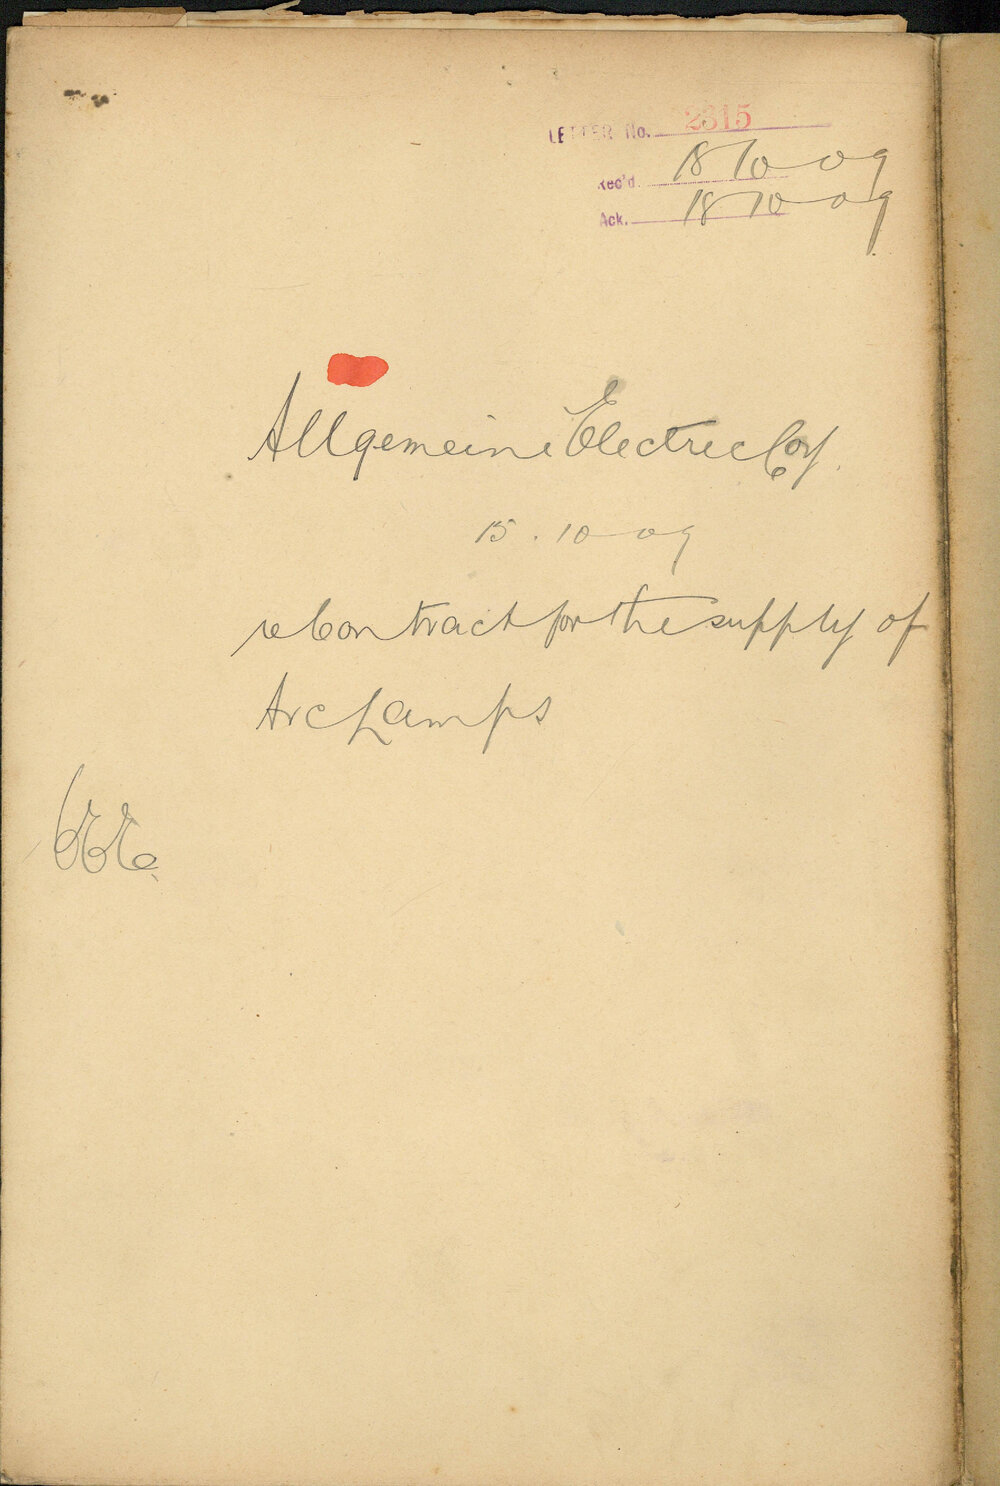 LETTER No. 2315
Rec'd. 18 10 09
Ack. 18 10 09
Allgemeine Electric Coy.
15. 10 09
re Contract for the supply of
Arc Lamps